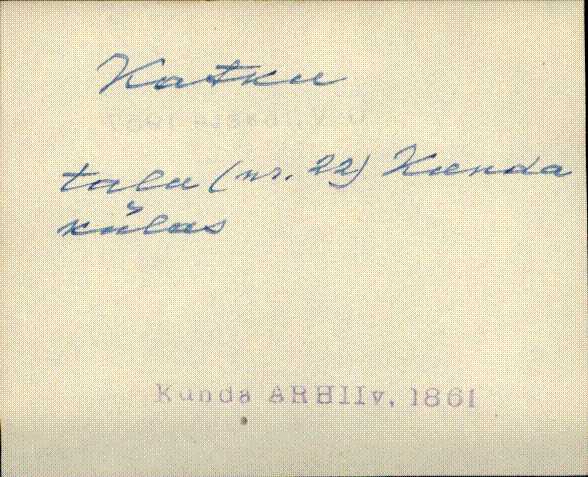 Katku
talu (nr. 22) Kunda
külas
Kunda ARHIIv, 1861